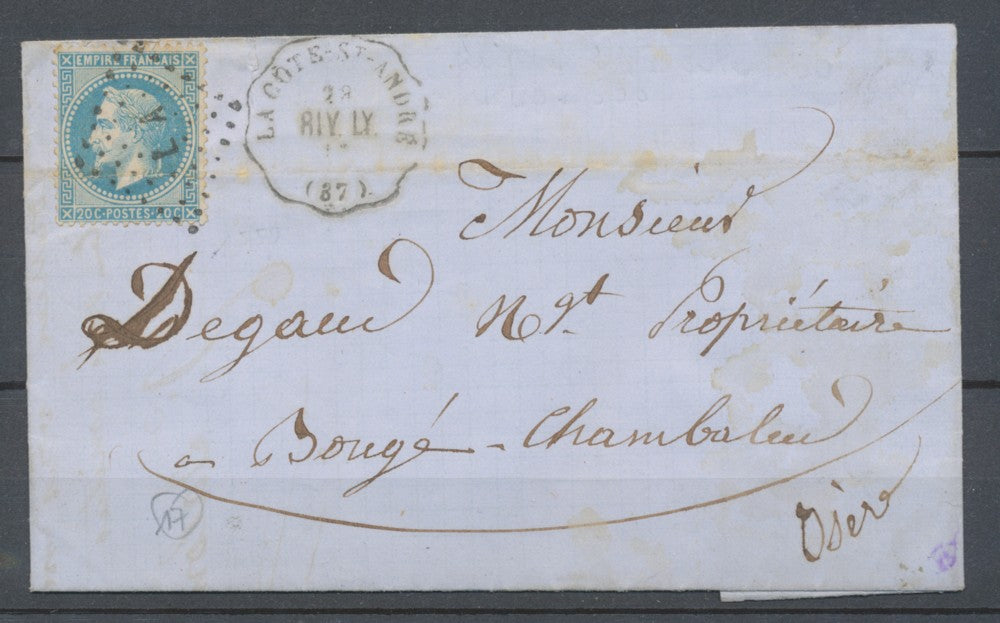 EMPIRE FRANÇAIS
20C-POSTES-20C
LA CÔTE-ST-ANDRÉ
28
RIV. LY.
(37)
Monsieur
Degaud Ngt. Propriétaire
a Bougé-Chambalud
Isère
17